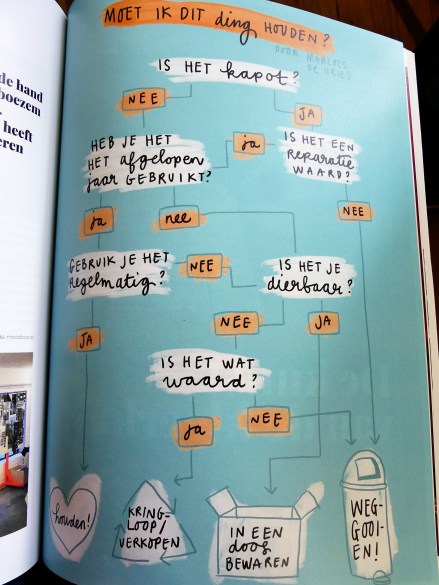 de hand
boezem
heeft
eren
MOET IK DIT ding HOUDEN?
DOOR MARLOES
DE VRIES
IS HET kapot?
NEE
JA
HEB JE HET
HET afgelopen
jaar GEBRUIKT?
ja
IS HET EEN
REPARATIE
WAARD?
ja
nee
NEE
GEBRUIK JE HET
regelmatig?
NEE
IS HET JE
dierbaar?
JA
NEE
JA
IS HET WAT
waard?
ja
NEE
houden!
KRING-
LOOP/
VERKOPEN
IN EEN
doos
BEWAREN
WEG-
GOOI-
EN!